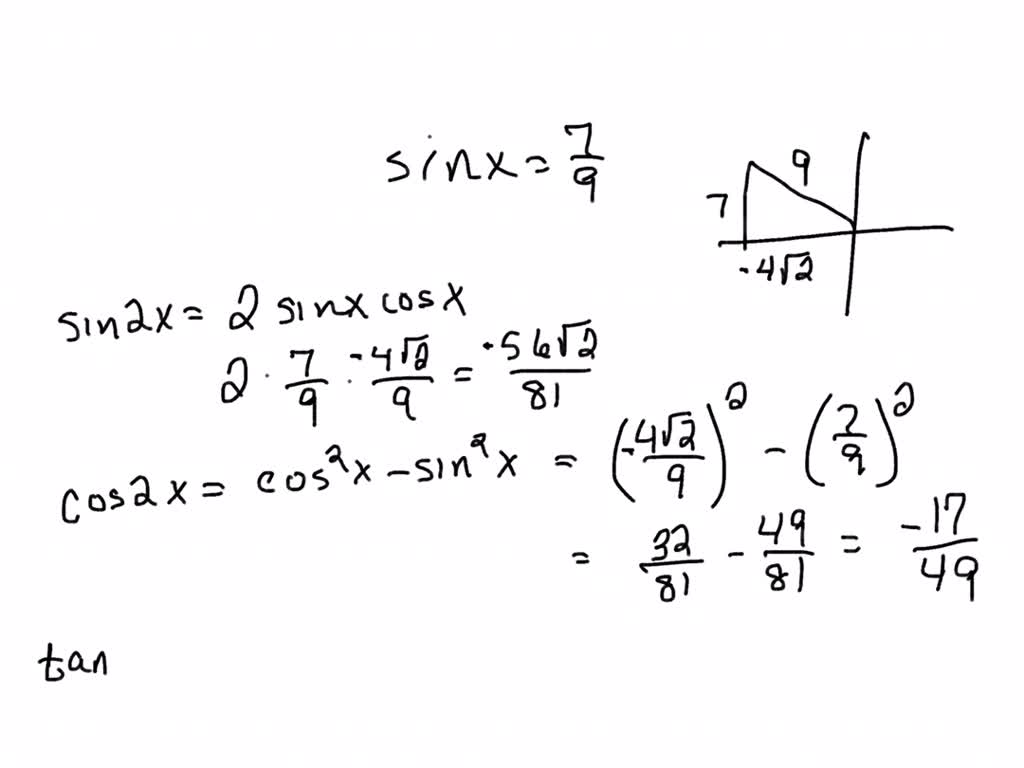 sinx = 7/9
9
7
-4√2
sin2x = 2 sinx cosx
2 · 7/9 · -4√2/9 = -56√2/81
cos2x = cos²x - sin²x = (-4√2/9)² - (7/9)²
= 32/81 - 49/81 = -17/49
tan